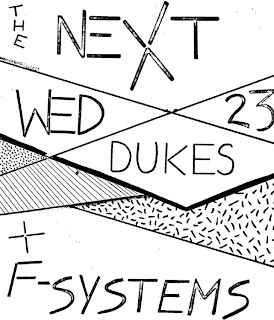 THE
NEXT
WED 23
DUKES
+
F-SYSTEMS